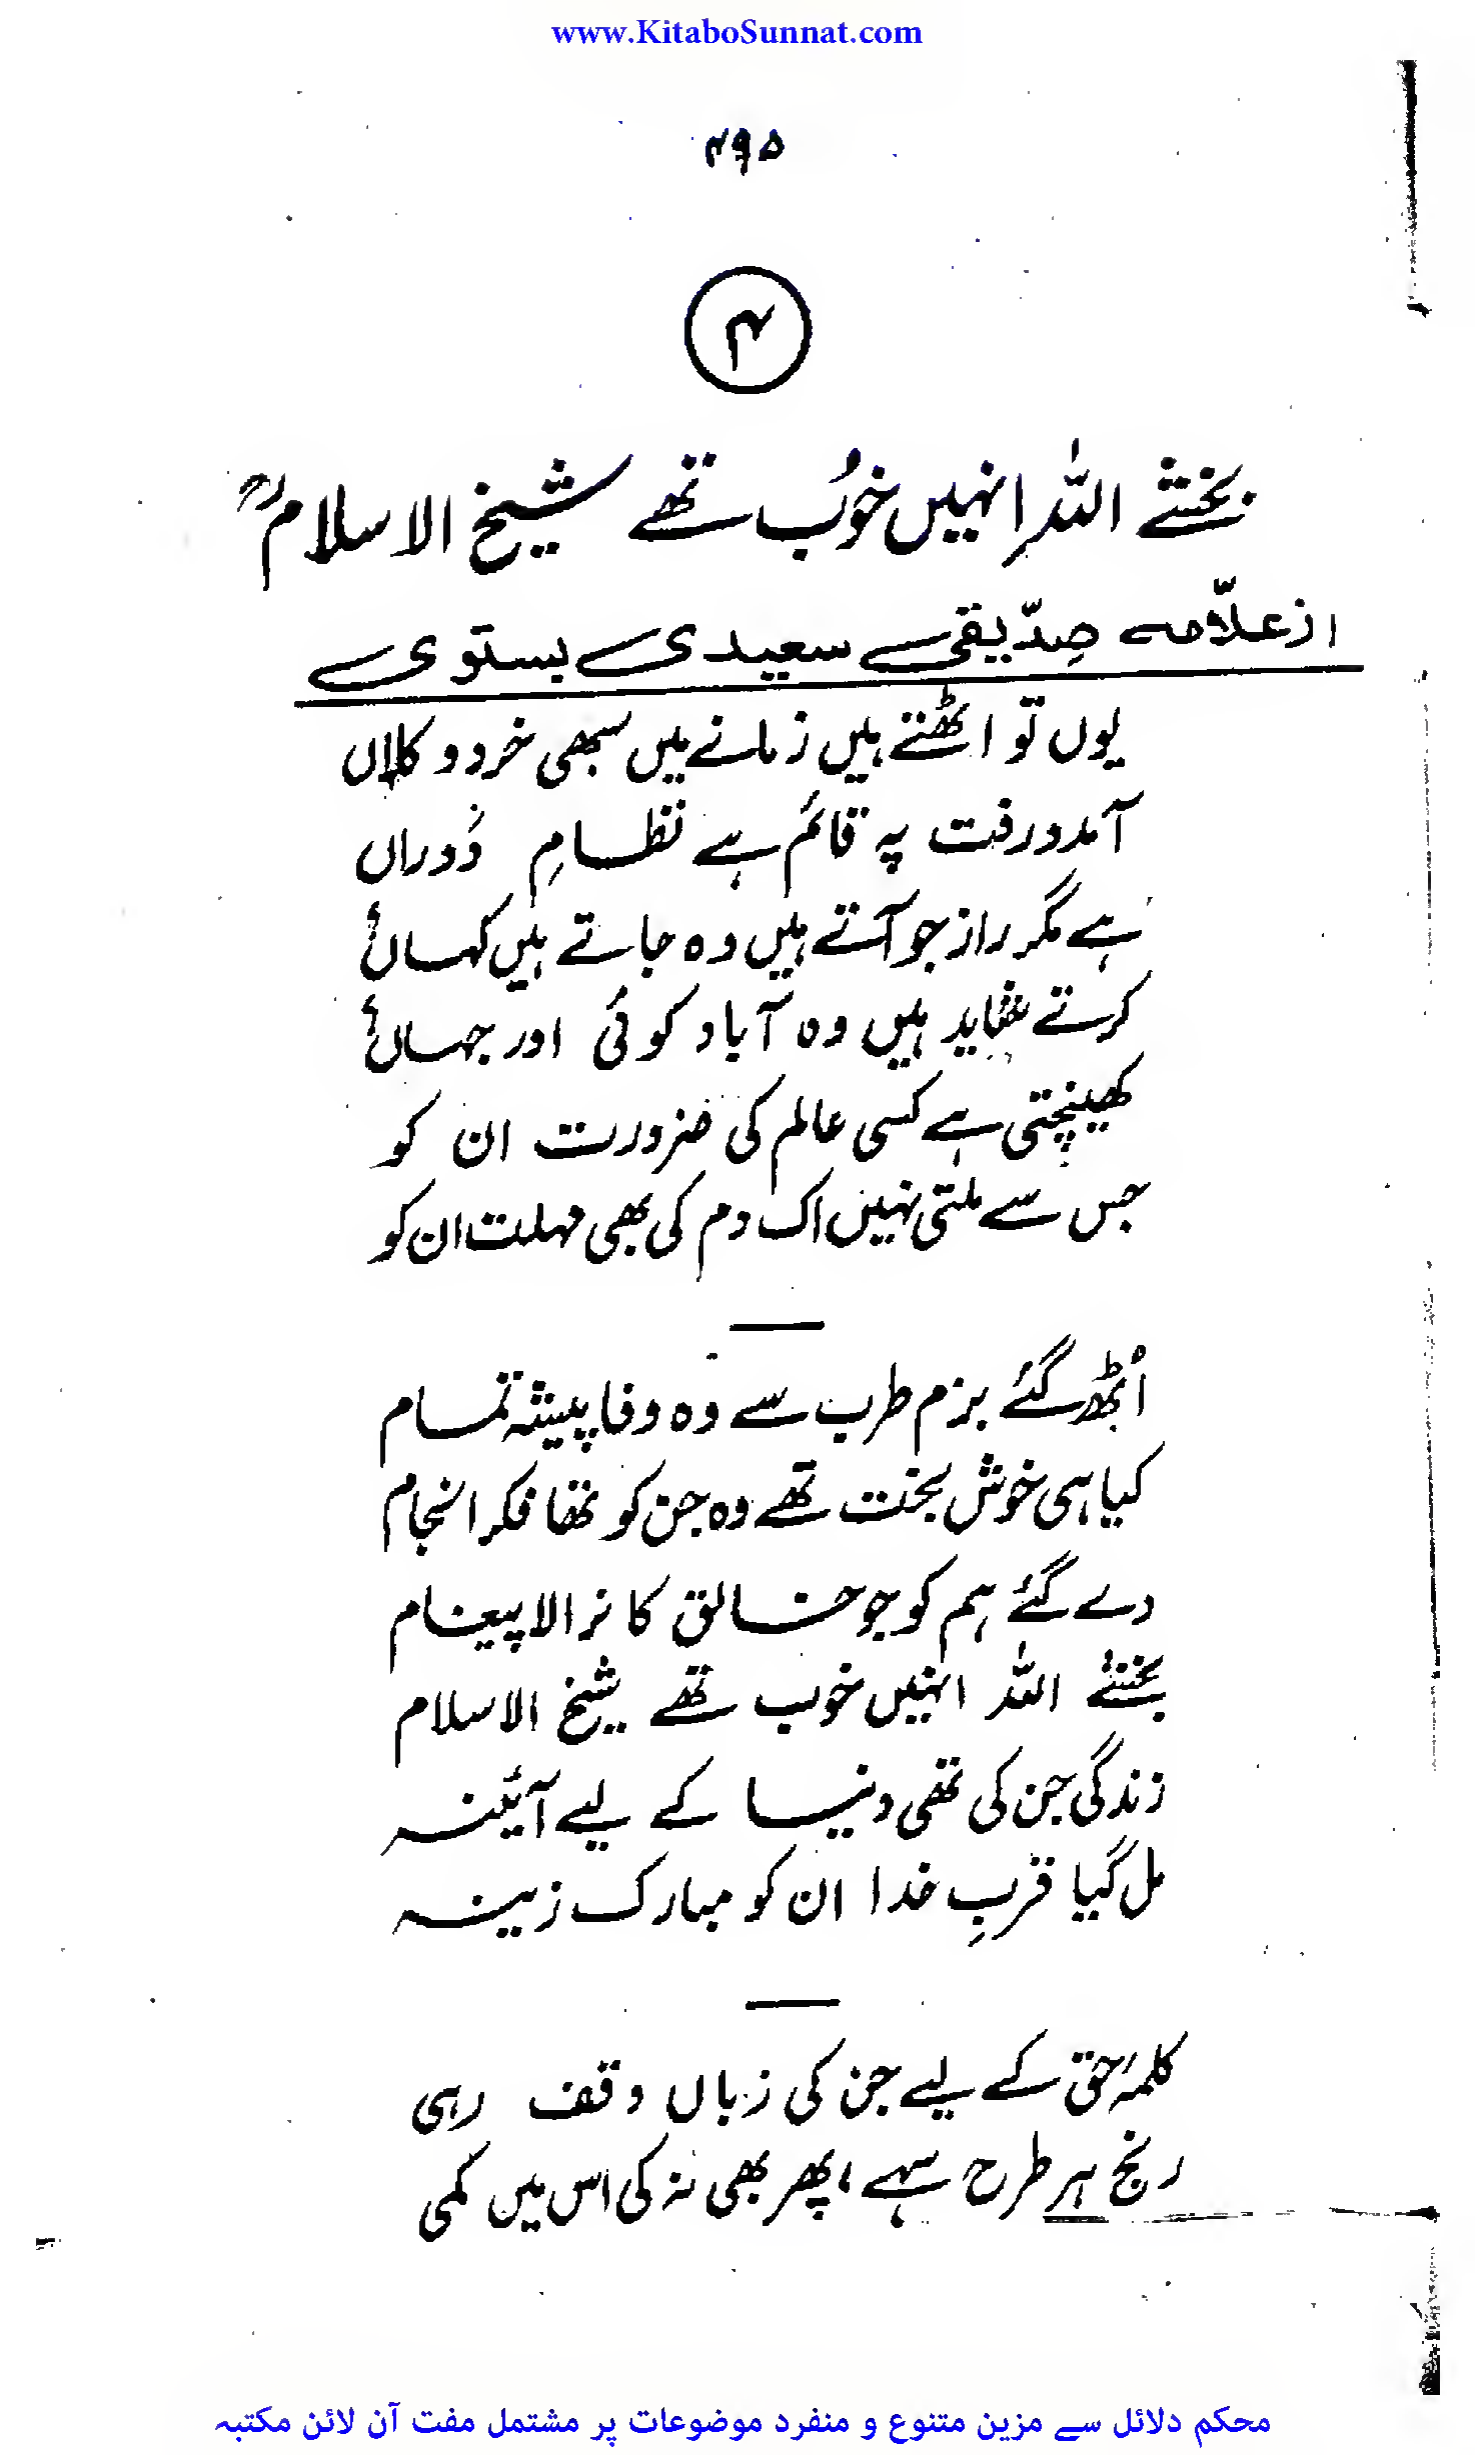 www.KitaboSunnat.com
۴۹۵
۴
بخشے اللہ اِنہیں خوُب تھے شیخ الاسلامؒ
از علاّمہ صِدّیقی سعیدی بستوی
یوں تو اٹھتے ہیں زمانے میں سبھی خرد و کلاں
آمدورفت پہ قائم ہے نظامِ دَوراں
ہے مگر راز جو آتے ہیں وہ جاتے ہیں کہاں؟
کرتے شاید ہیں وہ آباد کوئی اور جہاں؟
کھینچتی ہے کسی عالم کی ضرورت ان کو
جس سے ملتی نہیں اک دم کی بھی مہلت ان کو
اُٹھ گئے بزم طرب سے وہ وفا پیشہ تمام
کیا ہی خوش بخت تھے وہ جن کو تھا فکر انجام
دے گئے ہم کو جو خالق کا نرالا پیغام
بخشے اللہ انہیں خوب تھے شیخ الاسلام
زندگی جن کی تھی دنیا کے لیے آئینہ
مل گیا قربِ خدا ان کو مبارک زینہ
کلمۂ حق کے لیے جن کی زباں وقف رہی
رنج ہر طرح سہے، پھر بھی نہ کی اس میں کمی
محکم دلائل سے مزین متنوع و منفرد موضوعات پر مشتمل مفت آن لائن مکتبہ